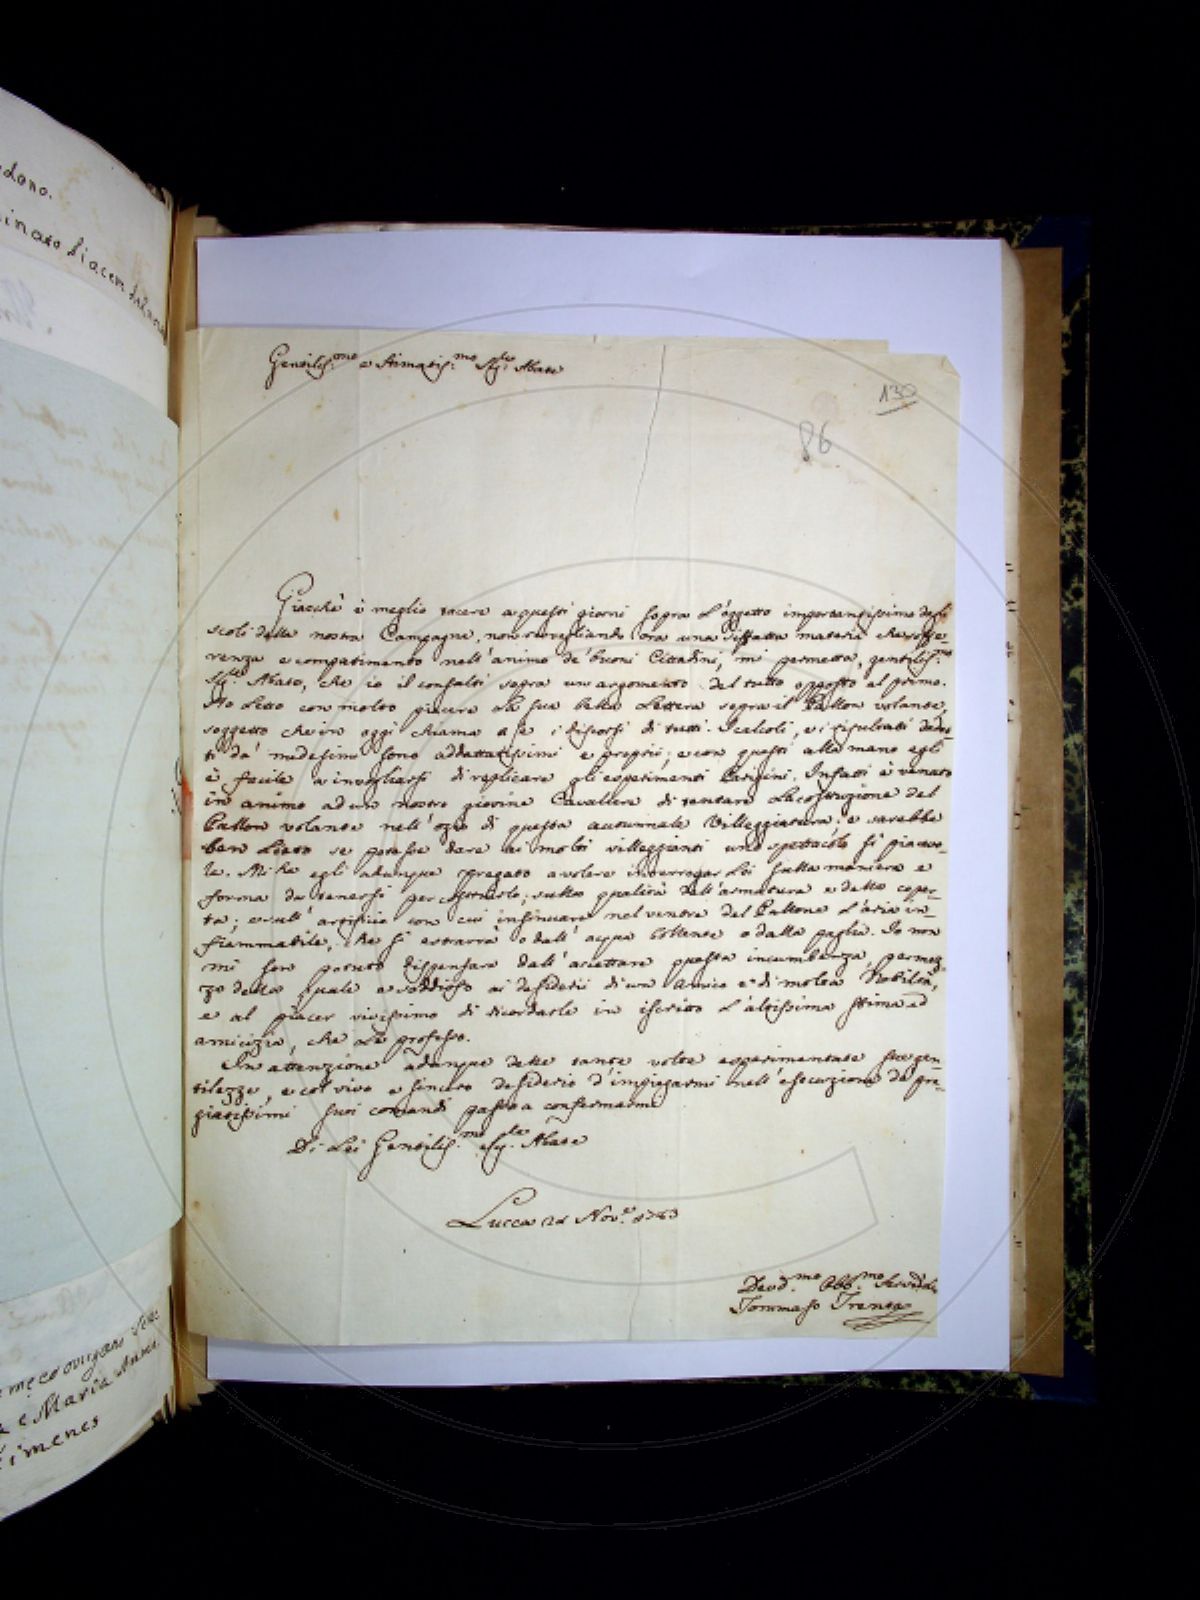 dono.
inato Piacere dal
Gentiliss.mo e Stimatiss.mo Sig.re Abate
130
86
Giacchè è meglio tacere a questi giorni sopra l'oggetto importantissimo degli
scoli della nostra Campagna, non risvegliando ora una siffatta materia che soffe-
renza e compatimento nell'animo de' buoni Cittadini, mi permetta, gentiliss.mo
Sig.re Abate, che io il consulti sopra un argomento del tutto opposto al primo.
Ho letto con molto piacere la sua bella Lettera sopra il Pallon volante,
soggetto che in oggi chiama a se i discorsi di tutti. I calcoli, e i risultati dedot-
ti da' medesimi sono addattatissimi e proprii; e con questi alla mano egli
è facile a invogliarsi di replicare gli esperimenti Parigini. Infatti è venuto
in animo ad un nostro giovine Cavaliere di tentare la costruzione del
Pallon volante nell'ozio di questa autunnale Villeggiatura; e sarebbe
ben lieto se potesse dare ai molti villeggianti uno spettacolo sì piacevo-
le. Mi ha egli adunque pregato a volere interrogar Lei sulla maniera e
forma da tenersi per costruirlo; sulla qualità dell'armatura e della coper-
ta; e sull'artificio con cui insinuare nel ventre del Pallone l'aria in-
fiammabile, che si estrarrà o dall'acqua bollente o dalla paglia. Io non
mi son potuto dispensare dall'accettare questa incumbenza, permez-
zo della quale e soddisfo ai desiderii di un Amico e di molta Nobiltà,
e al piacer vivissimo di ricordarle in iscritto l'altissima stima ed
amicizia, che Le professo.
In attenzione adunque delle tante volte esperimentate sue gen-
tilezze, e col vivo e sincero desiderio d'impiegarmi nell'esecuzione de' pre-
giatissimi suoi comandi passo a confermarmi
Di Lei Gentiliss.mo Sig.re Abate
Lucca Nov.e 1783
Devot.mo Obb.mo
Tommaso Trenta
e Maria Anna
Ximenes